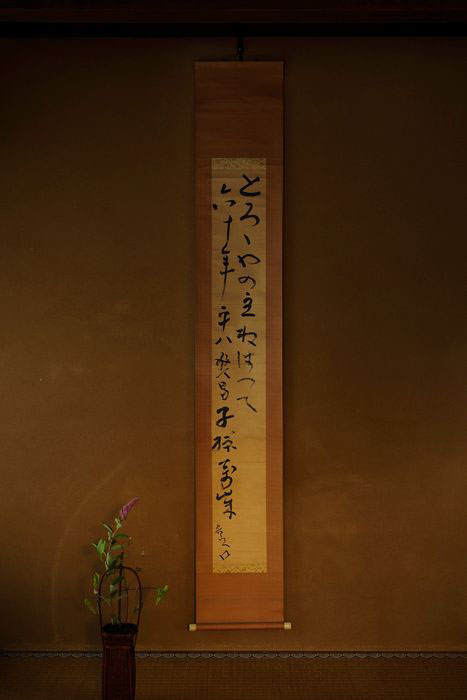 とろゝやの主ねはつて
六十年平八繁昌子孫萬歳